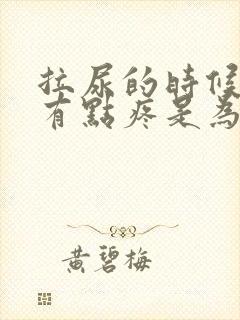 拉尿的時候
有點疼是為
黃碧梅